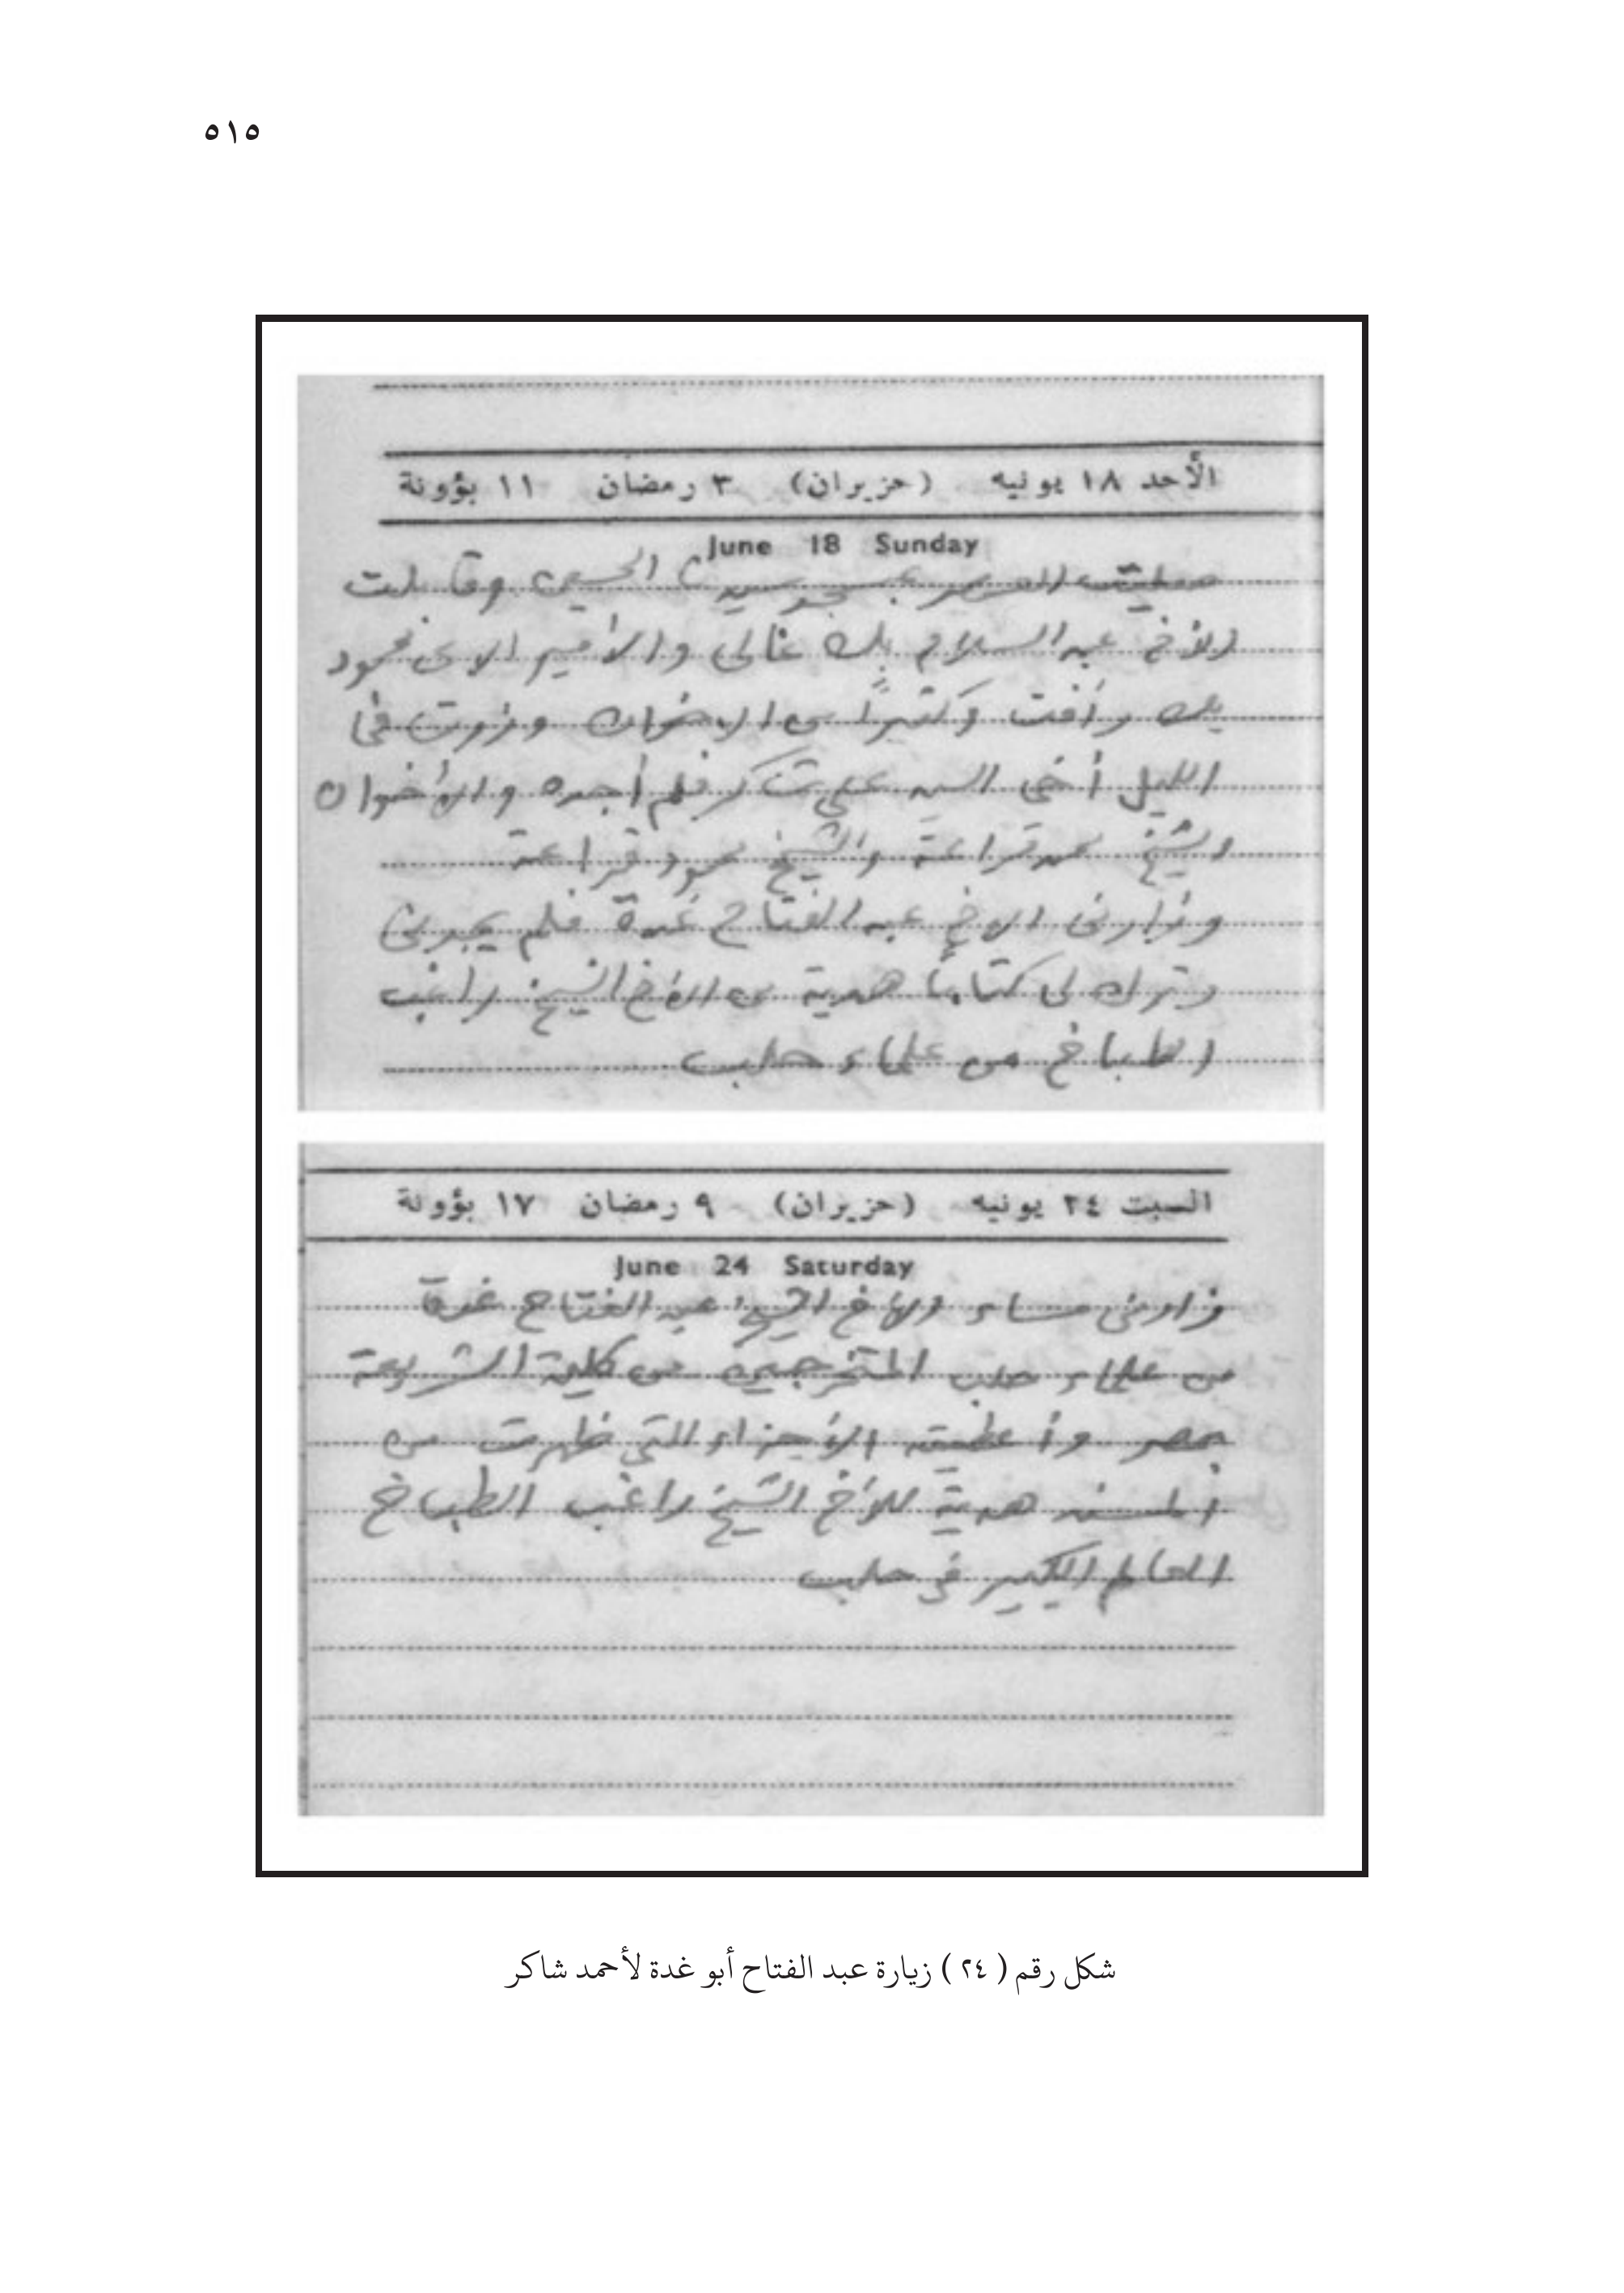 ٥١٥
الأحد ١٨ يونيه (حزيران) ٣ رمضان ١١ بؤونة
June 18 Sunday
صليت العصر بمسجد سيدنا الحسين وقابلت
الأخ عبد السلام بك غالى والأمير الاى محمود
بك رأفت وكثيراً من الاخوان وزرت فى
الليل أخى السيد على شاكر فلم أجده والأخوان
الشيخ محمد قراعة والشيخ محمود قراعة
وزارنى الاخ عبد الفتاح غدة فلم يجدنى
وترك لى كتابا هدية من الأخ الشيخ راغب
الطباخ من علماء حلب
السبت ٢٤ يونيه (حزيران) ٩ رمضان ١٧ بؤونة
June 24 Saturday
زارنى مساء الأخ الشيخ عبد الفتاح غدة
من علماء حلب المتخرجين من كلية الشريعة
بمصر وأعطيته الأجزاء التى ظهرت من
المسند هدية للأخ الشيخ راغب الطباخ
العالم الكبير فى حلب
شكل رقم ( ٢٤ ) زيارة عبد الفتاح أبو غدة لأحمد شاكر